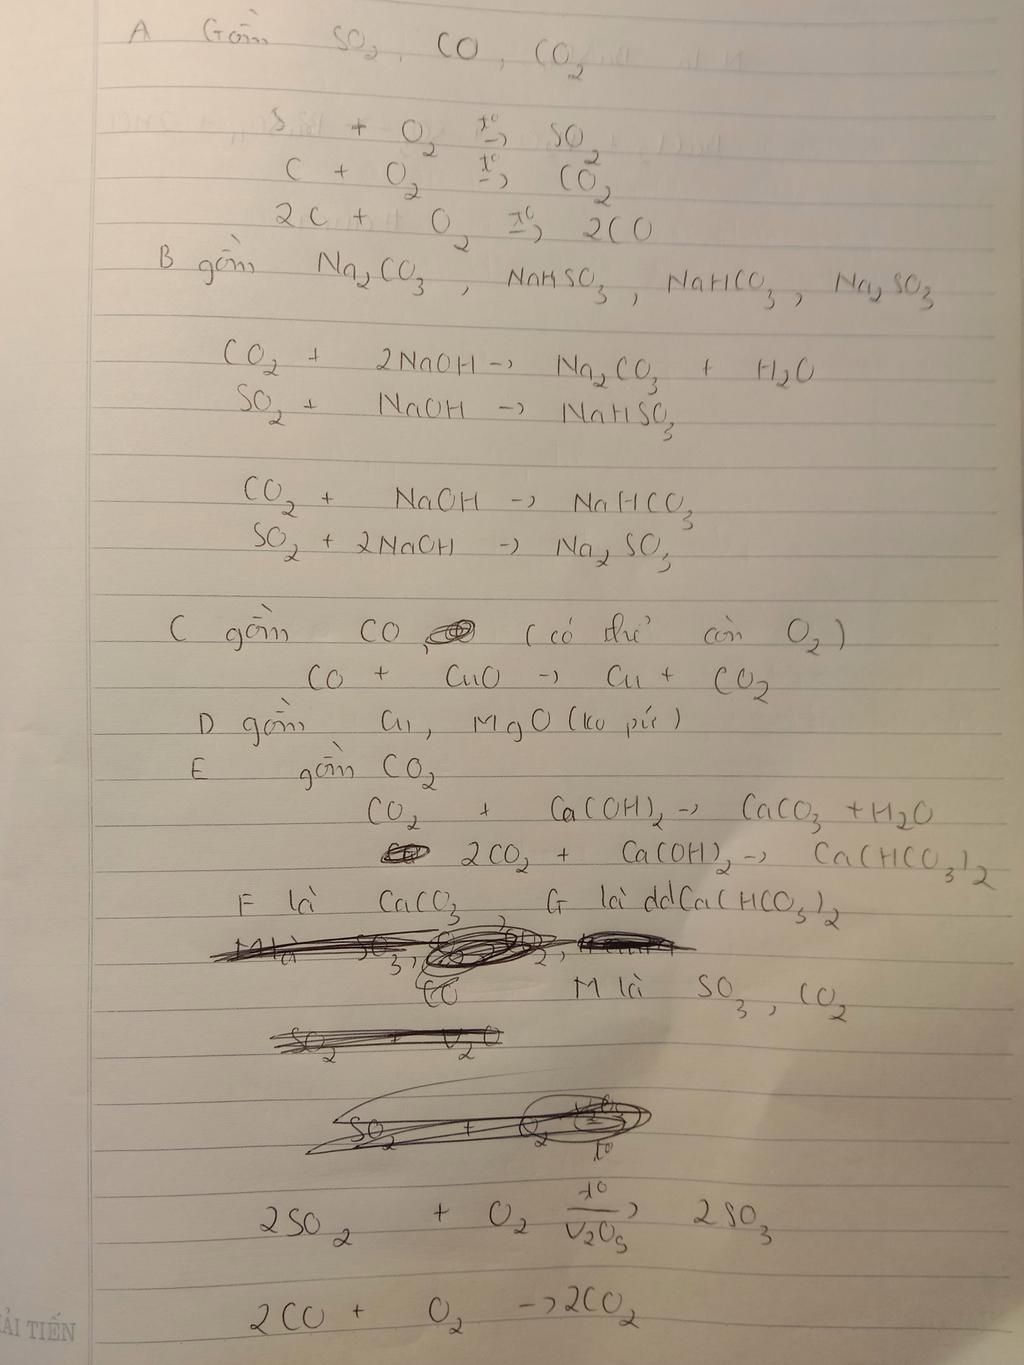 A Gồm SO2, CO, CO2
S + O2 t°→ SO2
C + O2 t°→ CO2
2C + O2 t°→ 2CO
B gồm Na2CO3, NaHSO3, NaHCO3, Na2SO3
CO2 + 2NaOH → Na2CO3 + H2O
SO2 + NaOH → NaHSO3
CO2 + NaOH → NaHCO3
SO2 + 2NaOH → Na2SO3
C gồm CO, (có thể còn O2)
CO + CuO → Cu + CO2
D gồm Cu, MgO (ko pứ)
E gồm CO2
CO2 + Ca(OH)2 → CaCO3 + H2O
2CO2 + Ca(OH)2 → Ca(HCO3)2
F là CaCO3 G là ddCa(HCO3)2
M là SO3,
CO M là SO3, CO2
SO2 + V2O
SO2 + O2 V2O5 t°
2SO2 + O2 t°/V2O5→ 2SO3
2CO + O2 → 2CO2
ẢI TIẾN